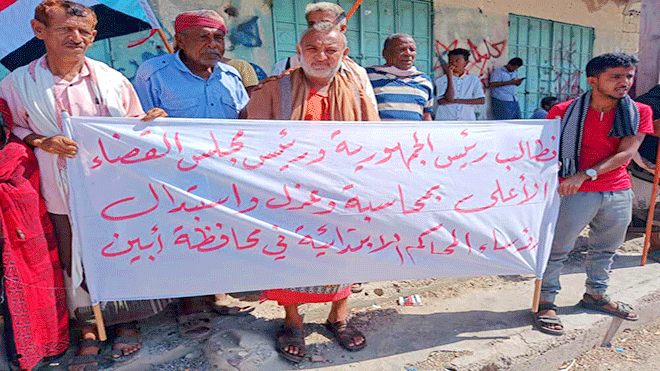 نطالب رئيس الجمهورية ورئيس مجلس القضاء
الأعلى بمحاسبة وعزل واستبدال
رؤساء المحاكم الابتدائية في محافظة أبين